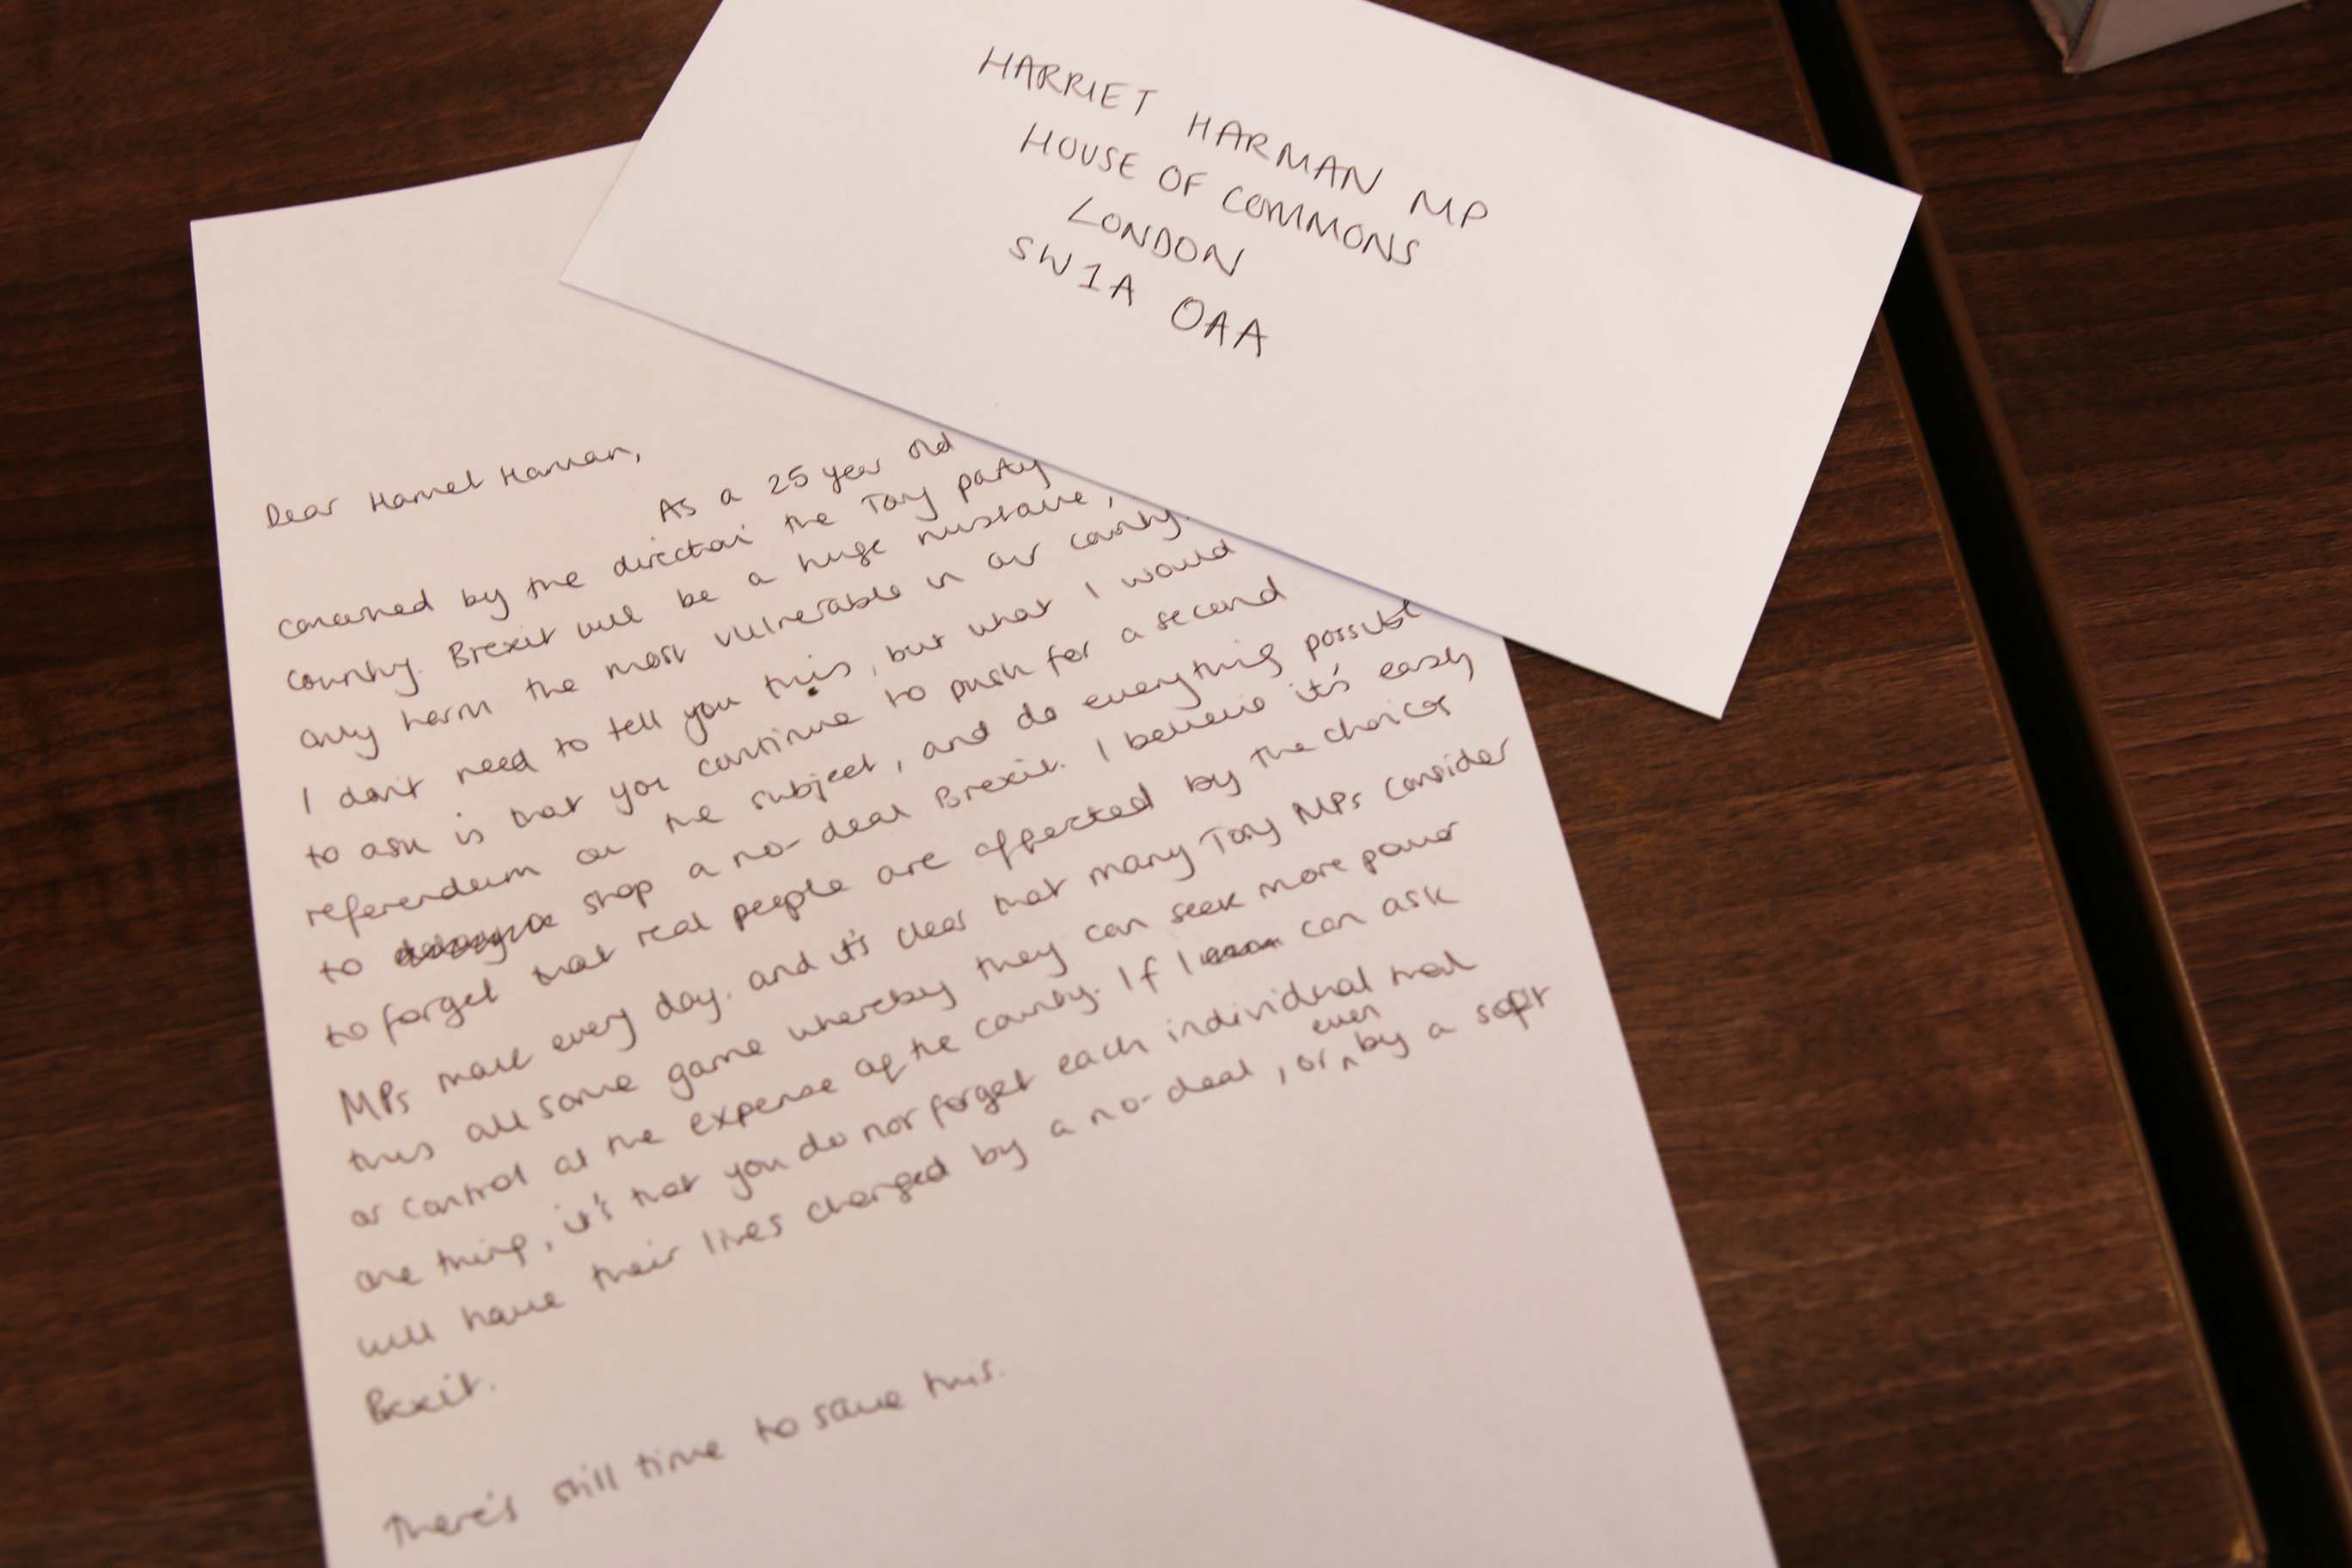 HARRIET HARMAN MP
HOUSE OF COMMONS
LONDON
SW1A 0AA
Dear Harriet Harman,
As a 25 year old
concerned by the direction the Tory party
country. Brexit will be a huge mistake,
only harm the most vulnerable in our country.
I don't need to tell you this, but what I would
to ask is that you continue to push for a second
referendum on the subject, and do everything possible
to stop a no-deal Brexit. I believe it's easy
to forget that real people are affected by the choices
MPs make every day. and it's clear that many Tory MPs consider
this all some game whereby they can seek more power
or control at the expense of the country. If I can ask
one thing, it's that you do not forget each individual that
will have their lives changed by a no-deal, or even by a soft
Brexit.
There's still time to save this.